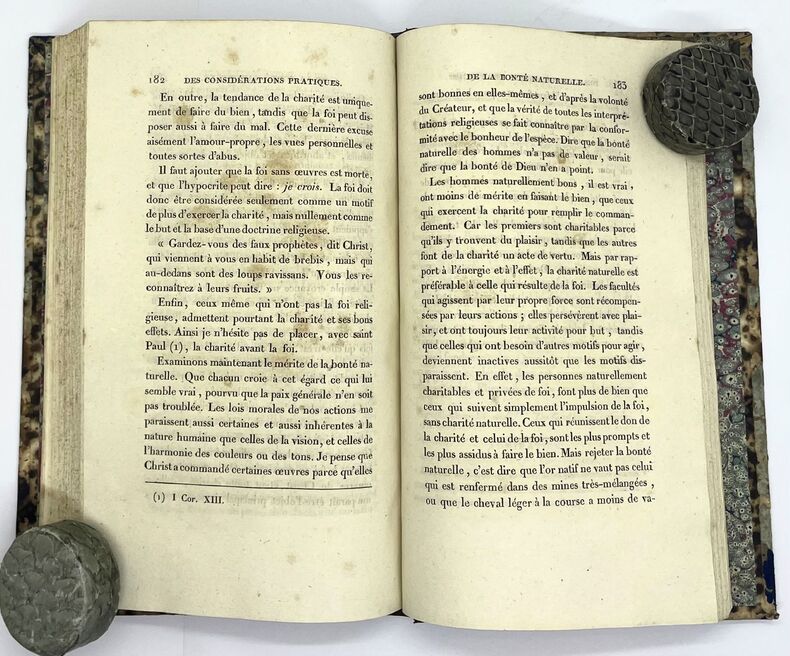 182 DES CONSIDÉRATIONS PRATIQUES.
En outre, la tendance de la charité est unique-
ment de faire du bien, tandis que la foi peut dis-
poser aussi à faire du mal. Cette dernière excuse
aisément l'amour-propre, les vues personnelles et
toutes sortes d'abus.
Il faut ajouter que la foi sans œuvres est morte,
et que l'hypocrite peut dire : je crois. La foi doit
donc être considérée seulement comme un motif
de plus d'exercer la charité, mais nullement comme
le but et la base d'une doctrine religieuse.
« Gardez-vous des faux prophètes, dit Christ,
qui viennent à vous en habit de brebis, mais qui
au-dedans sont des loups ravissans. Vous les re-
connaîtrez à leurs fruits. »
Enfin, ceux même qui n'ont pas la foi reli-
gieuse, admettent pourtant la charité et ses bons
effets. Ainsi je n'hésite pas de placer, avec saint
Paul (1), la charité avant la foi.
Examinons maintenant le mérite de la bonté na-
turelle. Que chacun croie à cet égard ce qui lui
semble vrai, pourvu que la paix générale n'en soit
pas troublée. Les lois morales de nos actions me
paraissent aussi certaines et aussi inhérentes à la
nature humaine que celles de la vision, et celles de
l'harmonie des couleurs ou des tons. Je pense que
Christ a commandé certaines œuvres parce qu'elles
(1) I Cor. XIII.
DE LA BONTÉ NATURELLE. 183
sont bonnes en elles-mêmes, et d'après la volonté
du Créateur, et que la vérité de toutes les interpré-
tations religieuses se fait connaître par la confor-
mité avec le bonheur de l'espèce. Dire que la bonté
naturelle des hommes n'a pas de valeur, serait
dire que la bonté de Dieu n'en a point.
Les hommes naturellement bons, il est vrai,
ont moins de mérite en faisant le bien, que ceux
qui exercent la charité pour remplir le comman-
dement. Car les premiers sont charitables parce
qu'ils y trouvent du plaisir, tandis que les autres
font de la charité un acte de vertu. Mais par rap-
port à l'énergie et à l'effet, la charité naturelle est
préférable à celle qui résulte de la foi. Les facultés
qui agissent par leur propre force sont récompen-
sées par leurs actions; elles persévèrent avec plai-
sir, et ont toujours leur activité pour but, tandis
que celles qui ont besoin d'autres motifs pour agir,
deviennent inactives aussitôt que les motifs dis-
paraissent. En effet, les personnes naturellement
charitables et privées de foi, font plus de bien que
ceux qui suivent simplement l'impulsion de la foi,
sans charité naturelle. Ceux qui réunissent le don de
la charité et celui de la foi, sont les plus prompts et
les plus assidus à faire le bien. Mais rejeter la bonté
naturelle, c'est dire que l'or natif ne vaut pas celui
qui est renfermé dans des mines très-mélangées,
ou que le cheval léger à la course a moins de va-